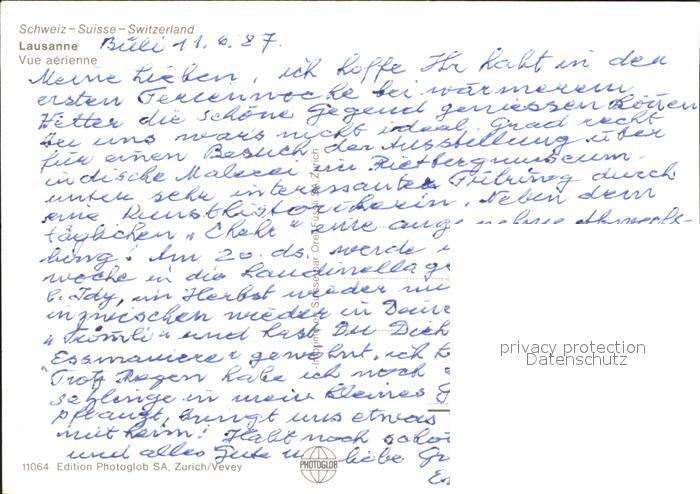 Schweiz – Suisse – Switzerland
Lausanne
Vue aérienne
Büli 11.6.87.
Meine Lieben, ich hoffe Ihr habt in der
ersten Ferienwoche bei wärmerem
Wetter die schöne Gegend geniessen können
Bei uns wars nicht ideal, Grad recht
für einen Besuch der Ausstellung über
indische Malerei im Rietbergmuseum.
unter sehr interessanter Führung durch
eine Kunsthistorikerin. Neben dem
täglichen „Chehr" eine ange nehme Abwechs-
lung! Am 20. ds. werde
woche in die Laudinella
b. Idy, im Herbst wieder
inzwischen wieder in
„Trümli" und hast Du Dich
Essmanieren gewöhnt, ich
Trotz Regen habe ich noch
setzlinge in mein kleines G
pflanzt, bringt uns etwas
mit heim! Habt noch schö
und alles Gute u liebe Gr
privacy protection
Datenschutz
Imprimé en Suisse par Orell Füssli SA Zurich
11064 Edition Photoglob SA, Zurich/Vevey
PHOTOGLOB